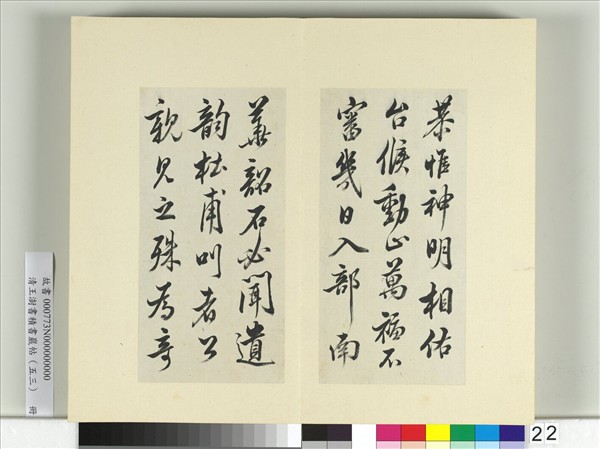 恭惟神明相佑
台候動止萬福不
審幾日入部南
華韶石必聞遺
韵杜甫叫者公
親見之殊為奇
故書 000773N000000000
清王澍書積書巖帖(五三) 冊
22